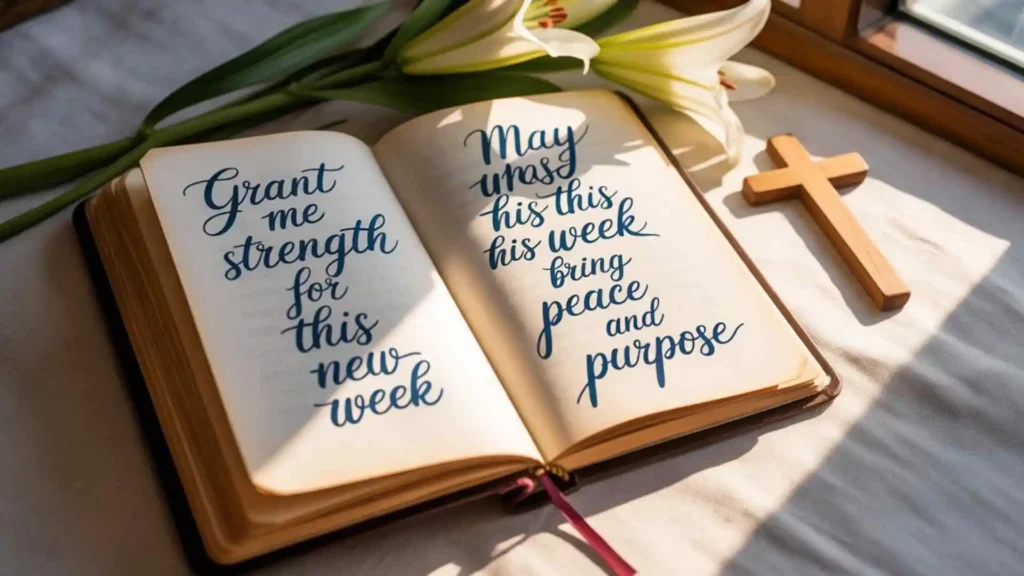 Grant
me
strength
for
this
new
week
May
unasg
his this
his week
bring
peace
and
purpose